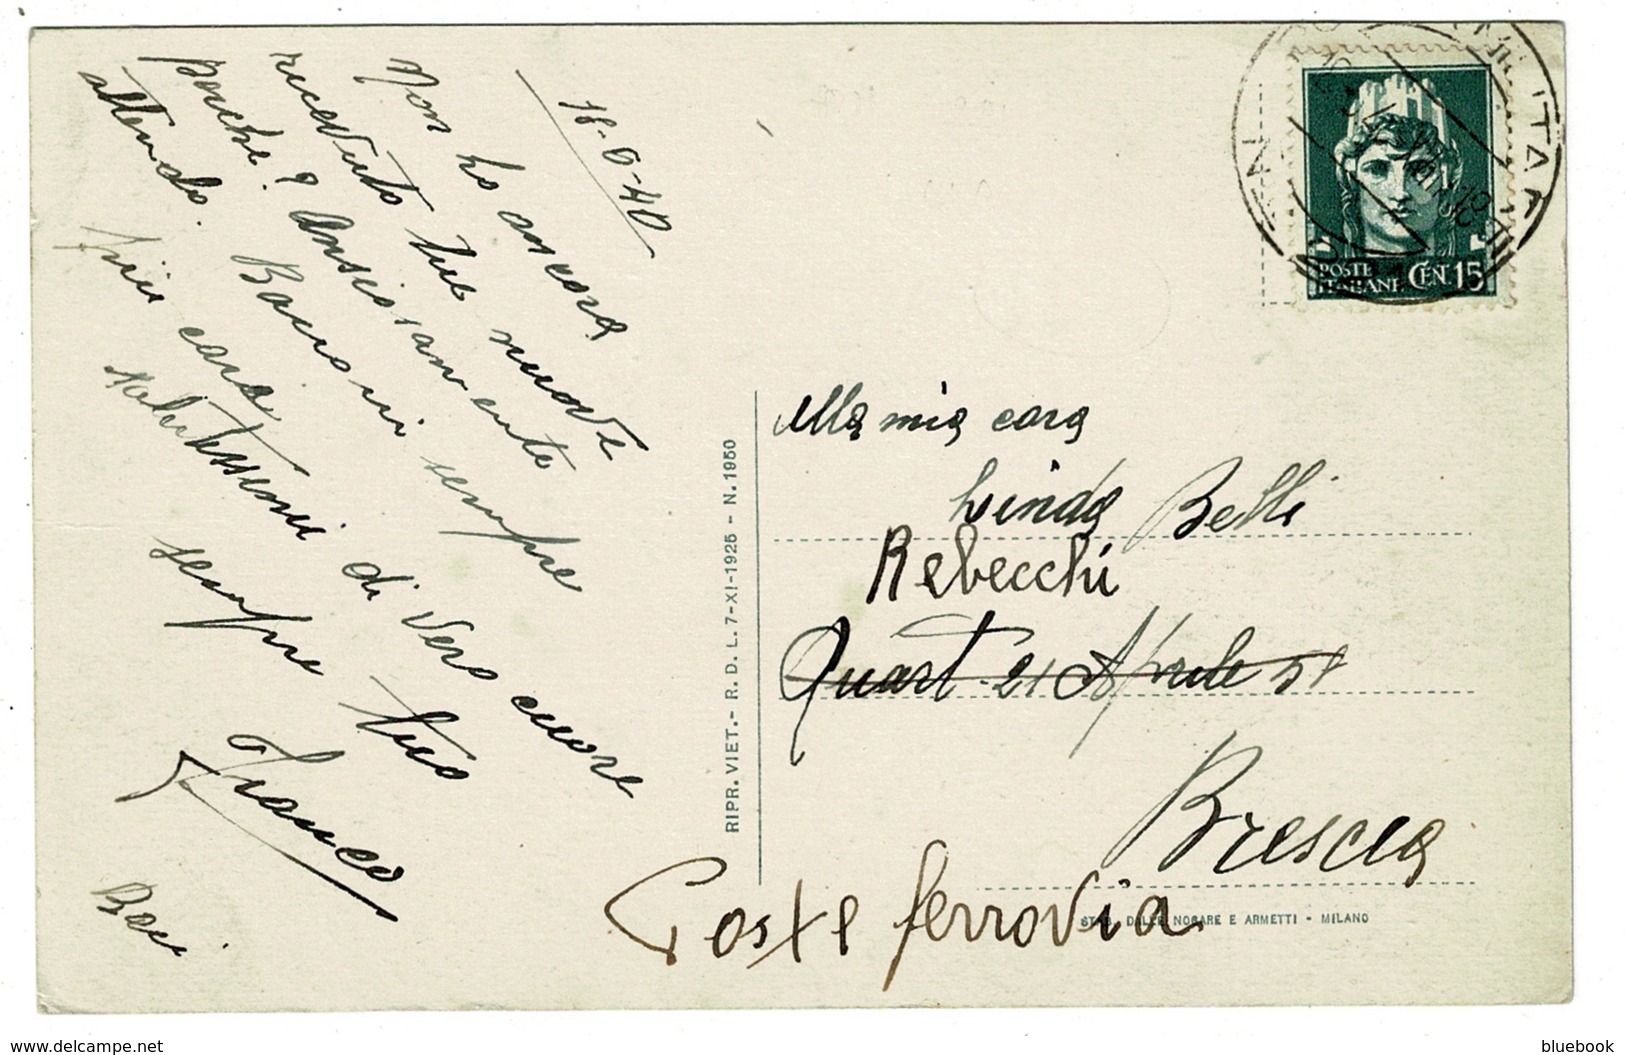 18-6-40
Non ho ancora
ricevuto tue nuove
perché? Ansiosamente
attendo. Bacioni sempre
più cara
di vero cuore
sempre tuo
Franco
Baci
RIPR. VIET. - R. D. L. 7-XI-1925 - N. 1950
POSTE
ITALIANE CEN. 15
Alla mia cara
Linda Belli
Rebecchi
Quart. 21 Aprile 51
Brescia
Poste ferrovia
STAB. DALLE NOGARE E ARMETTI - MILANO
www.delcampe.net
bluebook